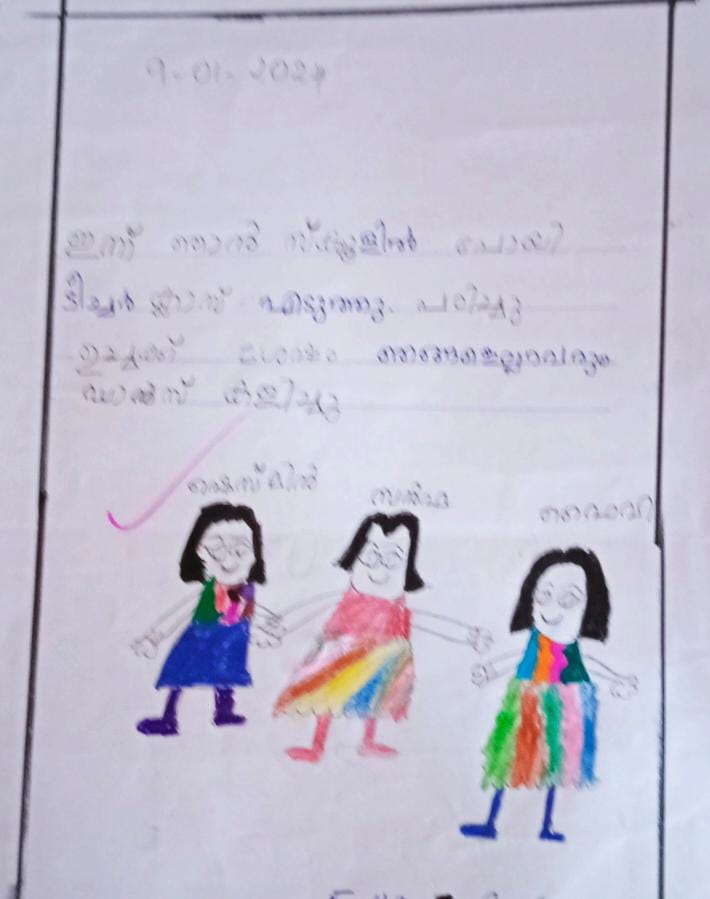 9-01-2024
ഇന്ന് ഞാൻ സ്കൂളിൽ പോയി
ടീച്ചർ ക്ലാസ് എടുത്തു. പഠിച്ചു
ഉച്ചക്ക് ശേഷം ഞങ്ങളെല്ലാവരും
ഡാൻസ് കളിച്ചു